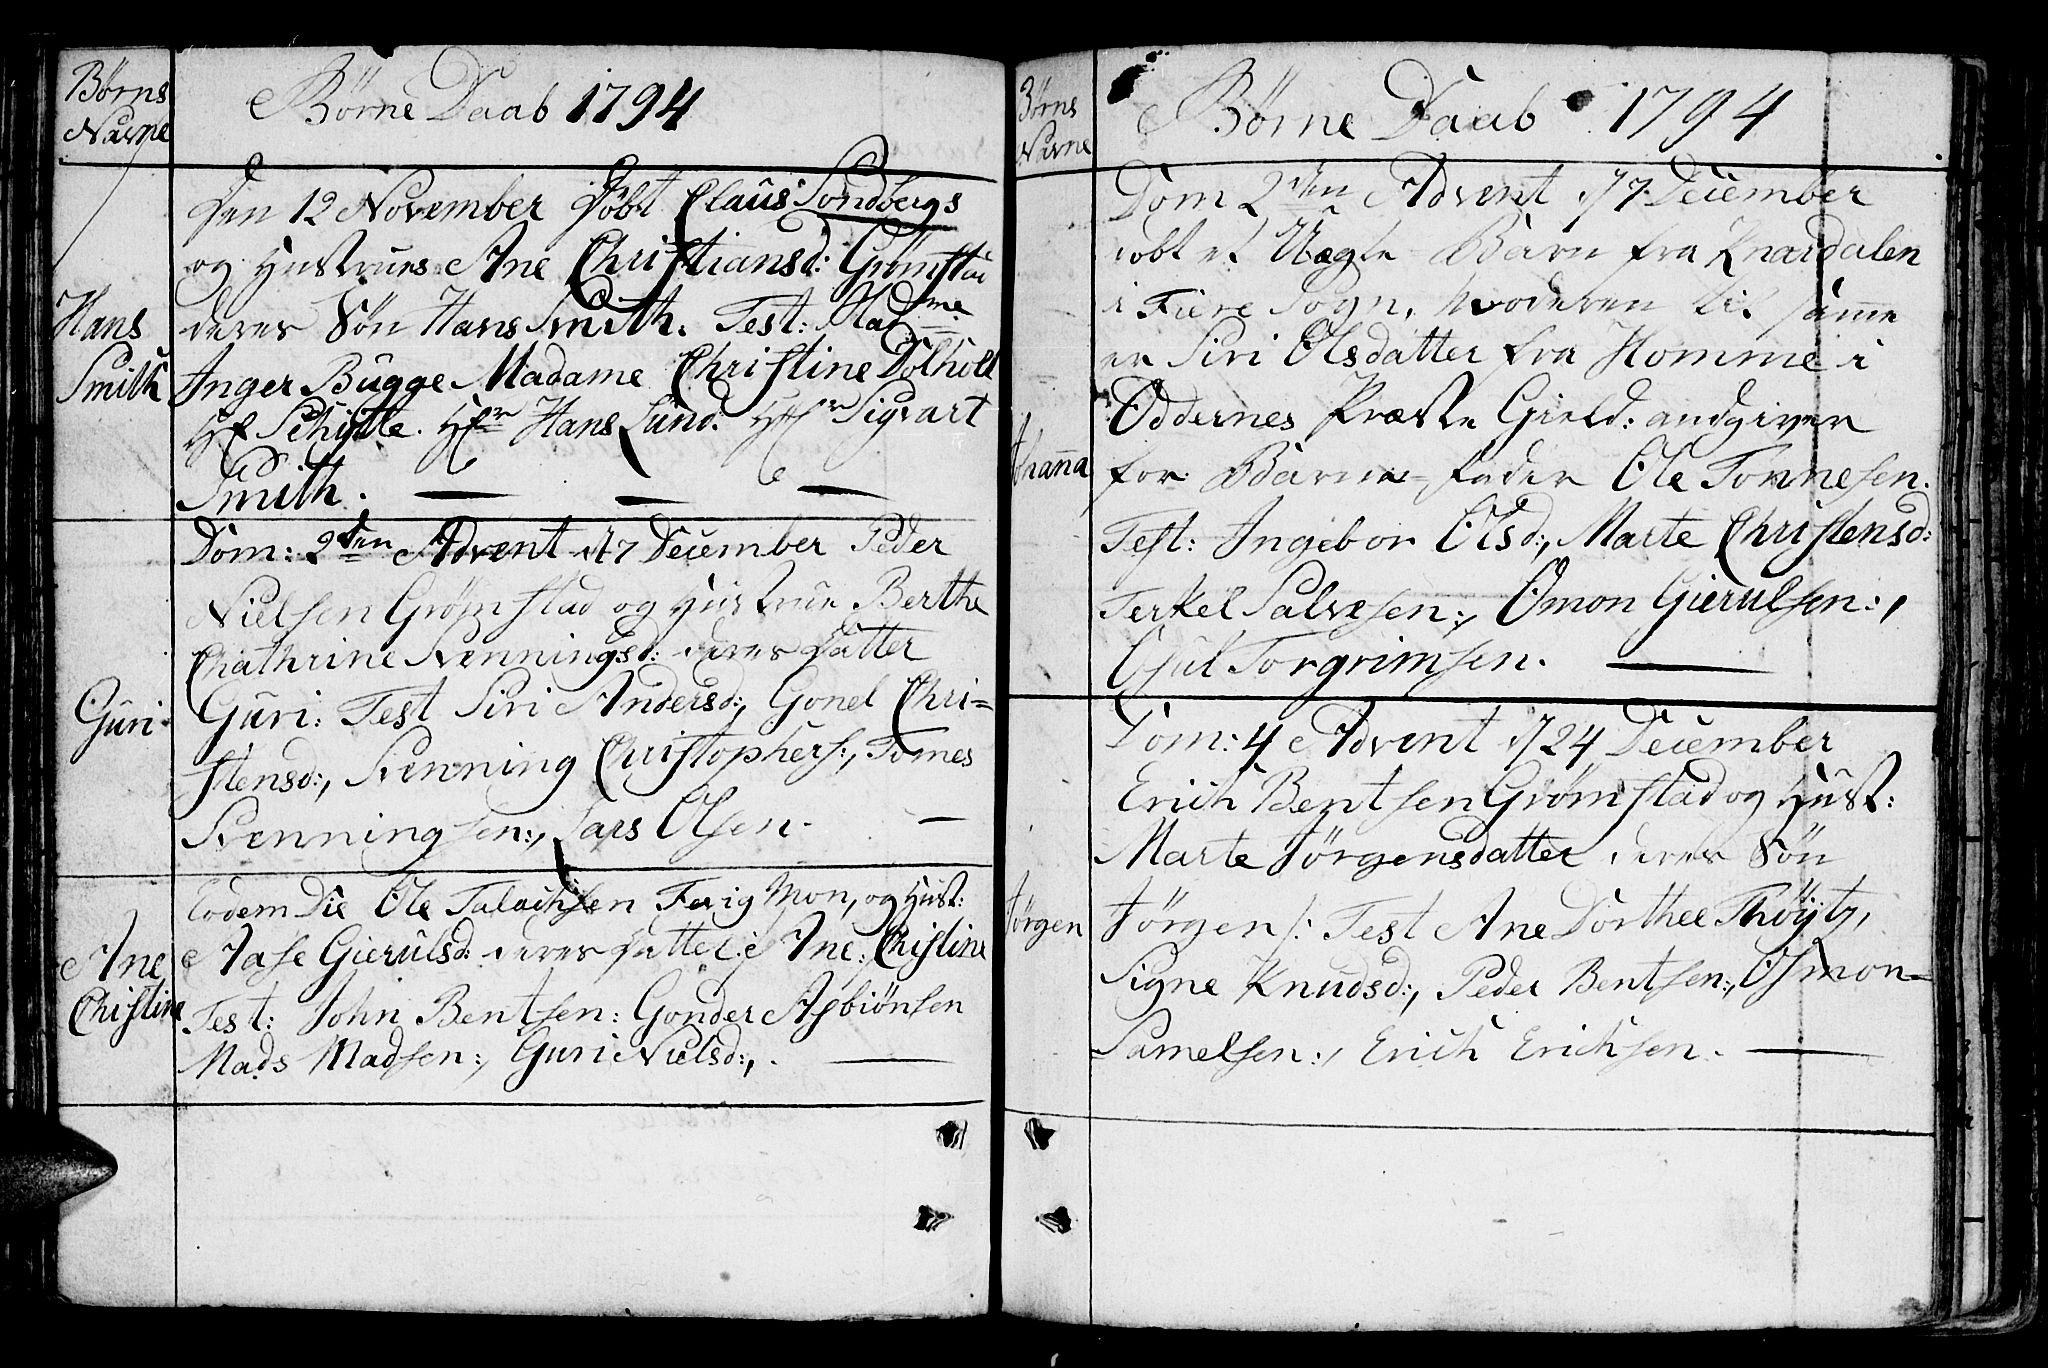 Børns
Navne
Børne Daab 1794
Den 12 November Døbt Claus Sondbergs
og Hustrues Ane Christiansd: Grømstad
Hans
Smith
deres Søn Hans Smith. Test: Mad me
Inger Bugge Madame Christine Dolholt
Hr Schytte. Hr Hans Lund: Hr Sigvart
Smith.
Dom: 2den Advent d 7 December Peder
Nielsen Grømstad og Hustrue Berthe
Chathrine Svenningsd: deres Datter
Guri
Guri: Test Siri Andersd:, Gonel Chri=
stensd:, Svenning Christophers:, Tomes
Svenningsen:, Lars Olsen.
Eodem Die Ole Talachsen Fevig Mon, og Hust:
Ane
Christine
Aase Gierulsd: deres Datter: Ane: Christine
Test: John Bentsen: Gonder Asbiønsen
Mads Madsen:, Guri Nielsd:,.
Børns
Navne
Børne Daab 1794
Dom 2den Advent d 7 December
døbt et Uægte Barn fra Knardalen
i Fiere Sogn, Moderen til samme
er Siri Olsdatter fra Homme i
Oddernes Præste Gield: andgiver
Johanna
for Barne-fader Ole Tonnesen.
Test: Ingebor Olsd:, Marte Christensd:
Terkel Salvesen:, Omon Gierulsen:,
Ojul Torgrimsen.
Dom: 4 Advent d 24 December
Erich Bentsen Grømstad og Hust:
Marte Jørgensdatter deres Søn
Jørgen
Jørgen /: Test Ane Dorthee Thøytz,
Signe Knudsd:, Peder Bentsen:, Osmon
Samelsen:, Erich Erichsen.